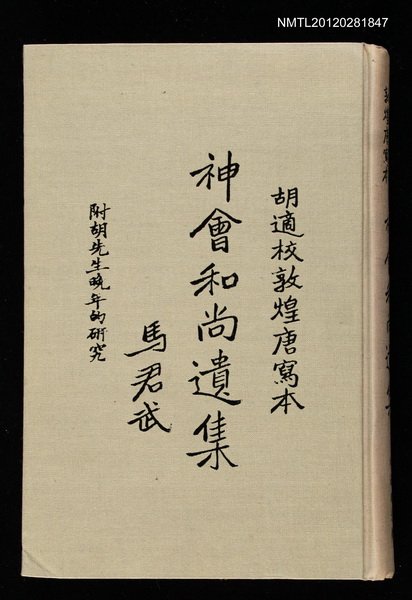 NMTL20120281847
胡適校敦煌唐寫本
神會和尚遺集
馬君武
附胡先生晚年的研究